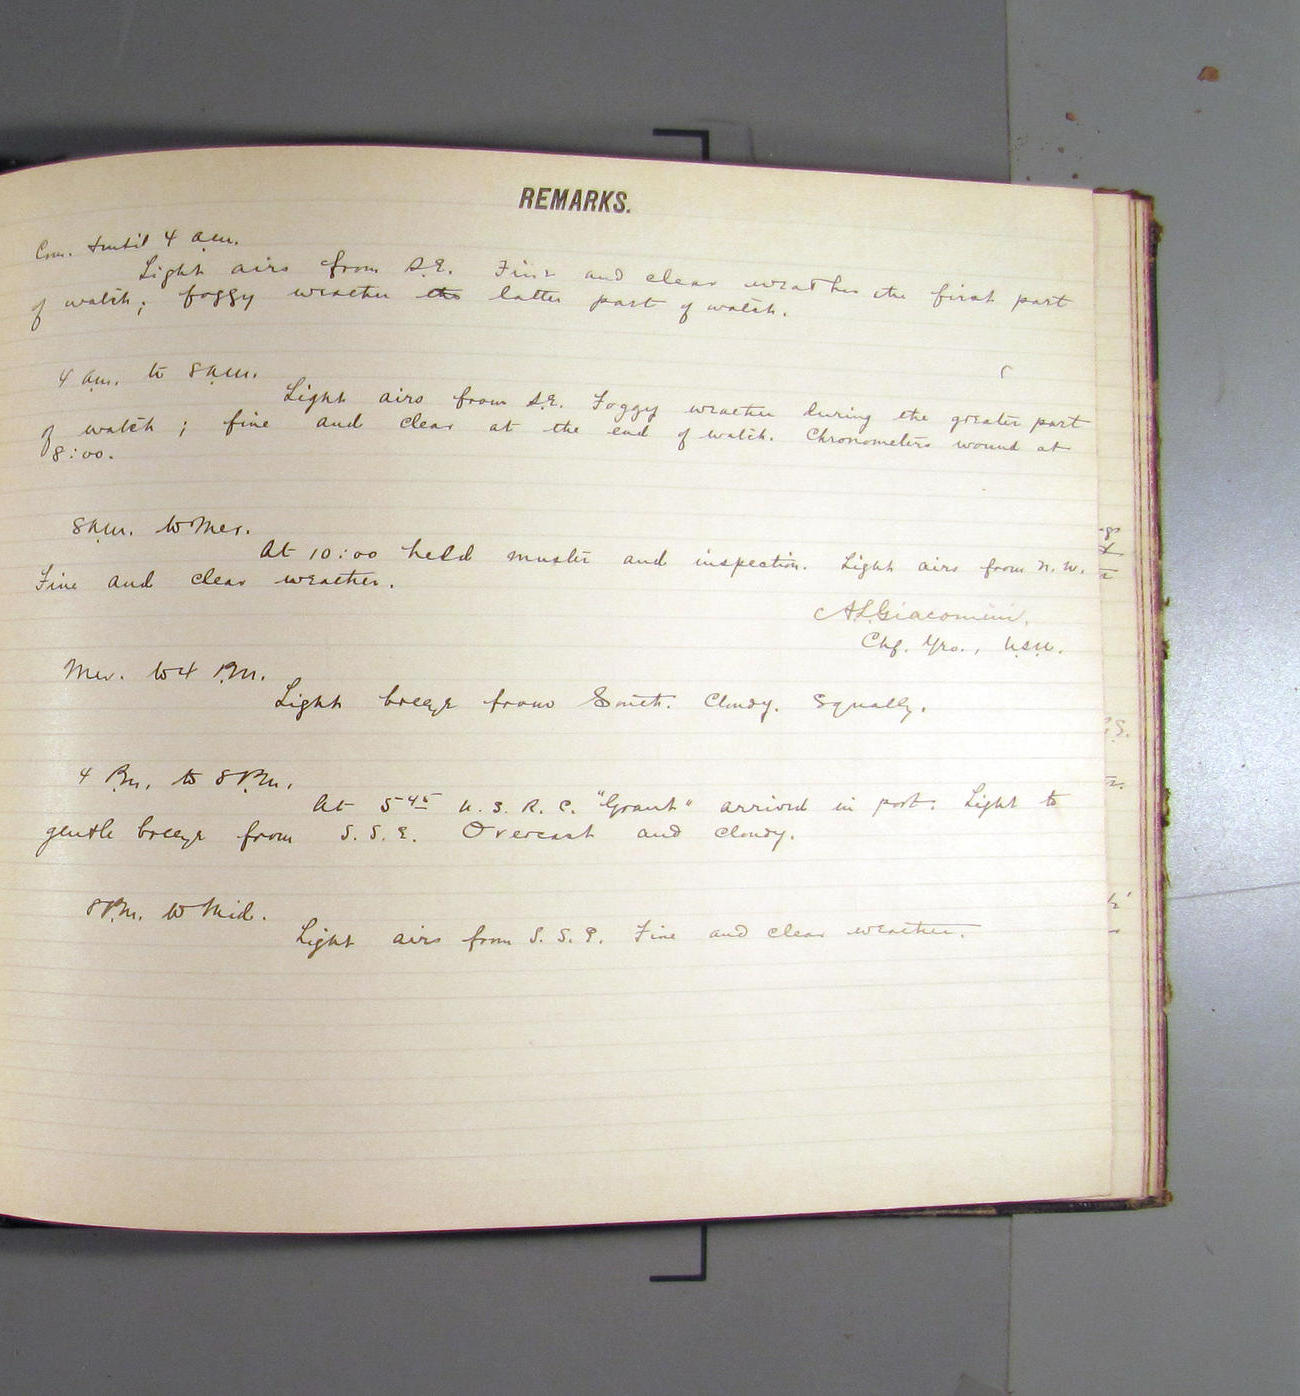 REMARKS.
Com. & until 4 a.m.
Light airs from S.E. Fine and clear weather the first part
of watch; foggy weather the latter part of watch.
4 a.m. to 8 a.m.
Light airs from S.E. Foggy weather during the greater part
of watch; fine and clear at the end of watch. Chronometers wound at
8:00.
8 a.m. to Mer.
At 10:00 held muster and inspection. Light airs from N.W.
Fine and clear weather.
A.L. Giacomini,
Chf. Yeo., U.S.N.
Mer. to 4 P.M.
Light breeze from South. Cloudy. Squally.
4 P.M. to 8 P.M.
At 5 45 U.S.R.C. "Grant" arrived in port. Light to
gentle breeze from S.S.E. Overcast and cloudy.
8 P.M. to Mid.
Light airs from S.S.E. Fine and clear weather.